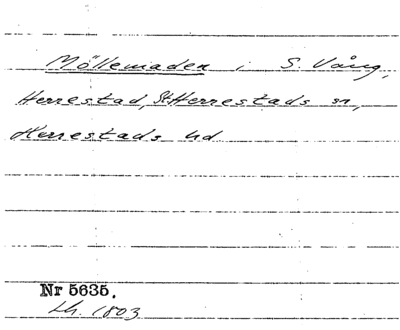 Möllemaden i S. Vång,
Herrestad, St. Herrestads sn,
Herrestads hd
Nr 5635.
Lh. 1803